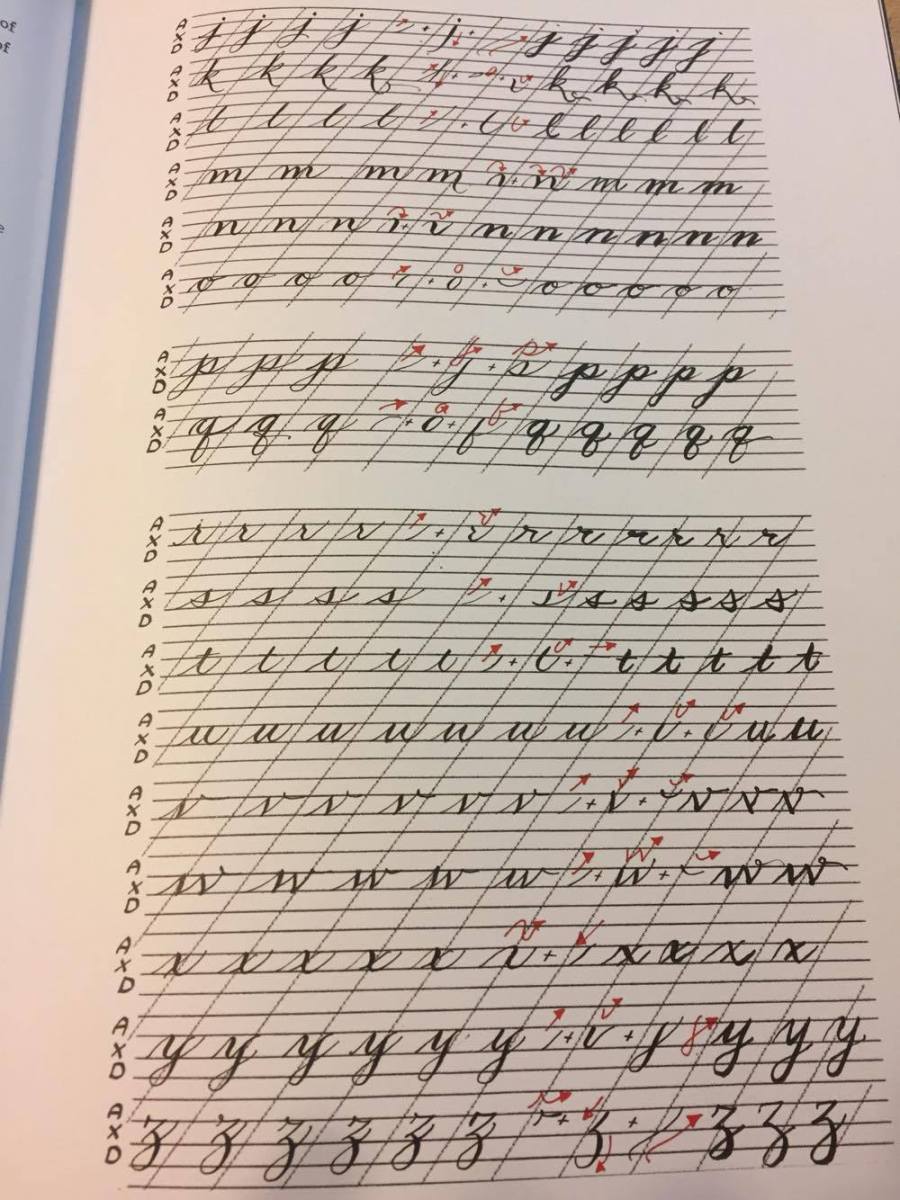 of
of
e
A X D j j j j + j + j j j j j
A X D k k k k + + k k k k
A X D l l l l + l l l l l
A X D m m m m + m m m
A X D n n n + n n n n n n
A X D o o o o + o + o o o o o
A X D p p p + + p p p p
A X D q q q + o + q q q q q
A X D r r r r + r r r r r r
A X D s s s s + s s s s s
A X D t t t t t + + t t t t t
A X D u u u u u u u + + u u
A X D v v v v v v + v + v v v
A X D w w w w w + w + w w
A X D x x x x x + x x x x
A X D y y y y y y + + y y y
A X D z z z z z z + + z z z